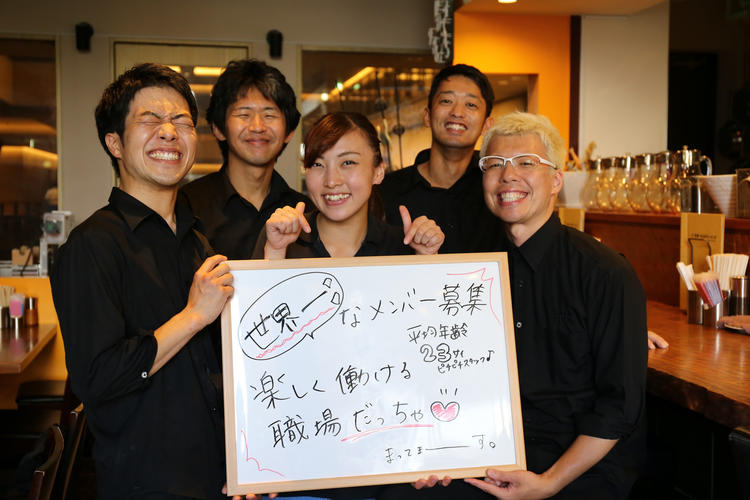 世界一なメンバー募集
平均年齢
23サイ
ピチピチスタッフ♪
楽しく働ける
職場だっちゃ♡
まってまーーす。